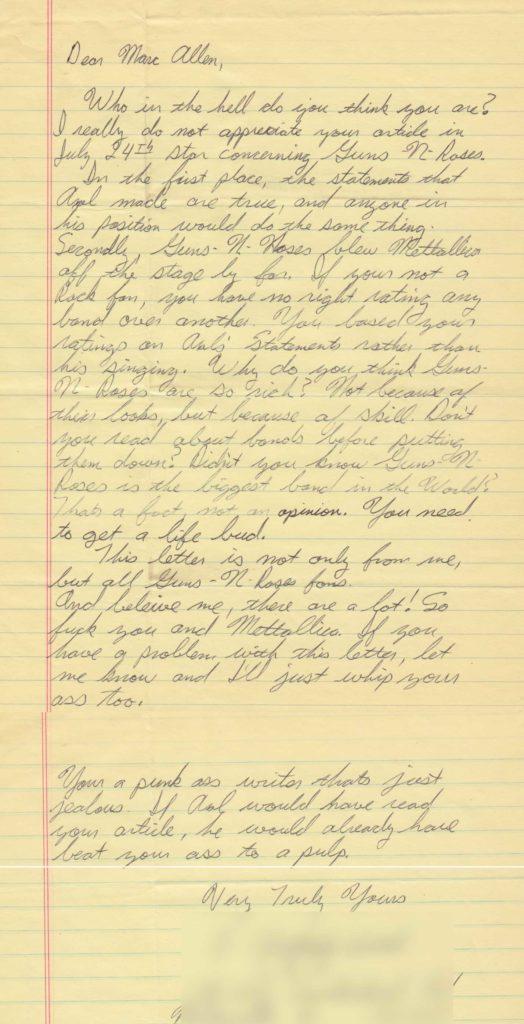 Dear Marc Allen,
Who in the hell do you think you are?
I really do not appreciate your article in
July 24th Star concerning Guns N-Roses.
In the first place, the statements that
Axl made are true, and anyone in
his position would do the same thing.
Secondly, Guns-N-Roses blew Mettallica
off the stage by far. If your not a
Rock fan, you have no right rating any
band over another. You based your
ratings on Axls' statements rather than
his singing. Why do you think Guns-
N-Roses are so rich? Not because of
their looks, but because of skill. Don't
you read about bands before putting
them down? Didn't you know Guns-N-
Roses is the biggest band in the World?
Thats a fact, not an opinion. You need
to get a life bud.
This letter is not only from me,
but all Guns-N-Roses fans.
And beleive me, there are a lot! So
fuck you and Mettallica. If you
have a problem with this letter, let
me know and I'll just whip your
ass too.
Your a punk ass writer thats just
jealous. If Axl would have read
your article, he would already have
beat your ass to a pulp.
Very Truly Yours